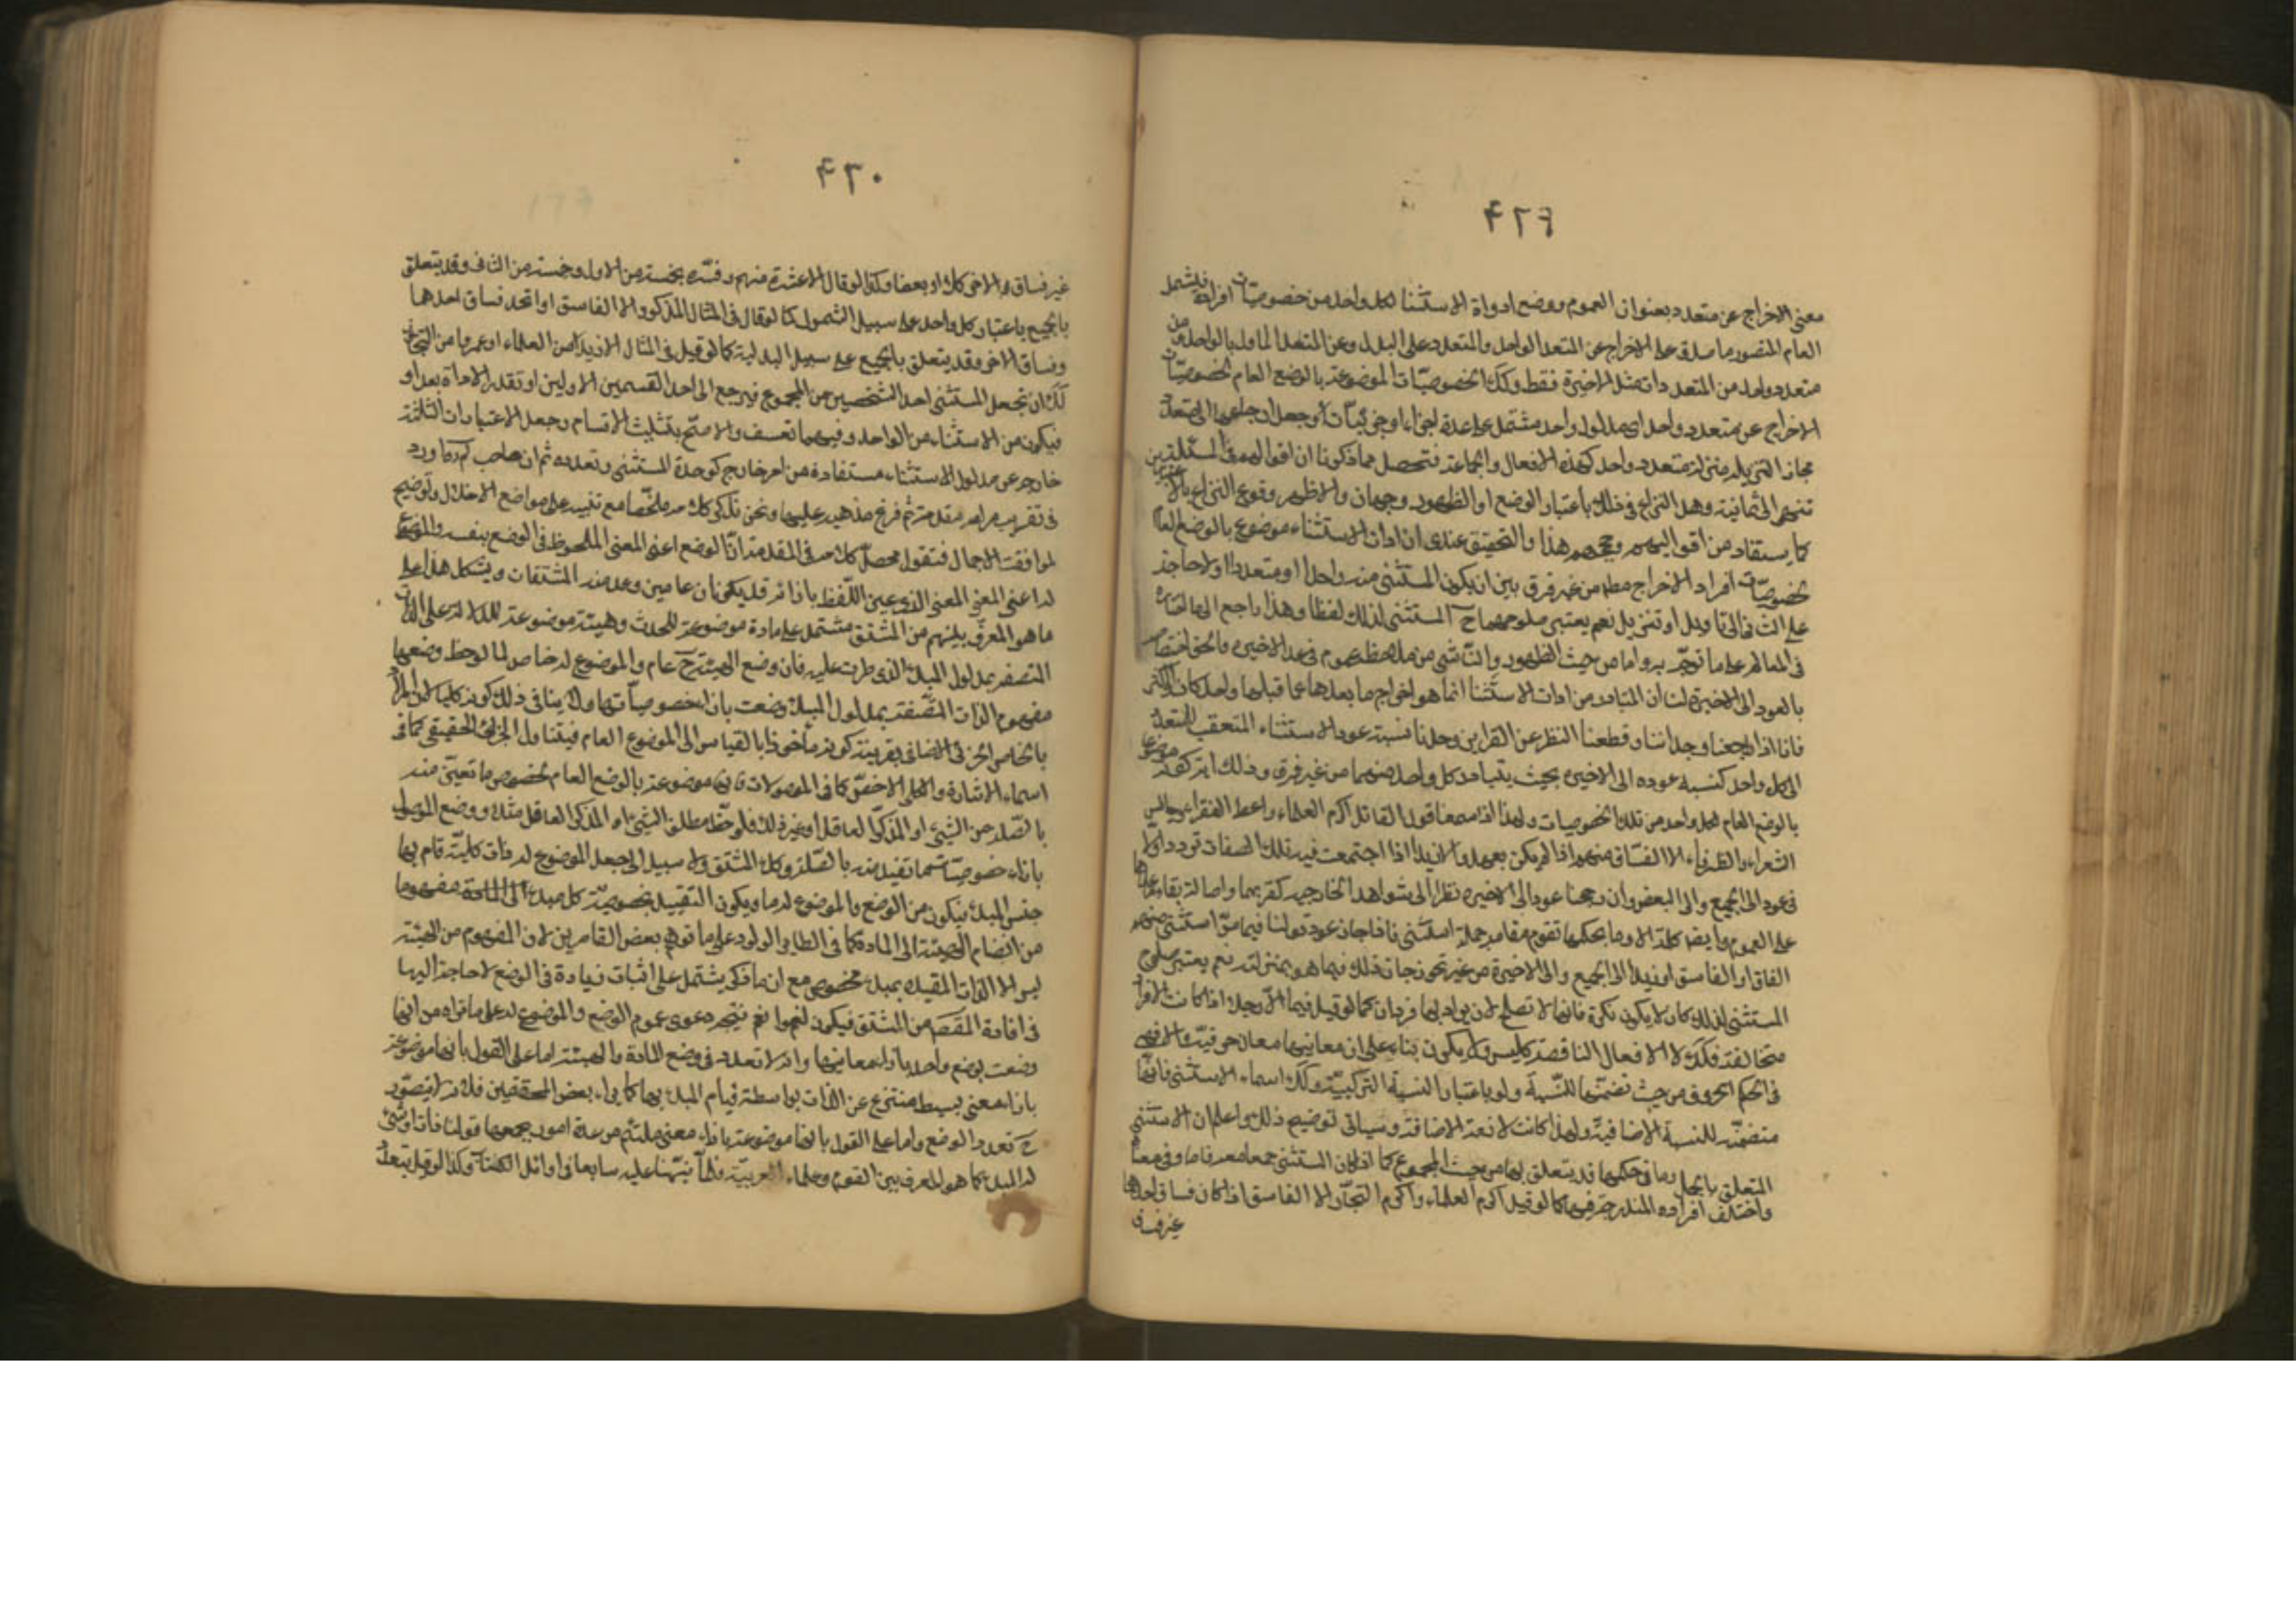 ۴۲۹
معنى الاخراج عن متعدد بعنوان العموم ووضع ادواة الاستثنا لكل واحد من خصوصيات افراده فيشمل
العام المتصور ما صدق عليه الاخراج عن المتعدد الواحد والمتعدد على البدل وعن المتعدد الماول بالواحد من
متعدد واحد من المتعددات مثل الاخيرة فقط وكك الخصوصيّات الموضوعة بالوضع العام لخصوصيّات
الاخراج عن متعدد واحد اى مدلول واحد مشتمل على عدة اجزاء او جزئيّات او جعل ارجاعها الى متعدد
مجاز التنزيله منزلة متعدد واحد كهذه الافعال والجماعة فتحصل مما ذكرنا ان اقوالهم فى المسئلة
تنتهى الى ثمانية وهل النزاع فى ذلك باعتبار الوضع او الظهور وجهان والاظهر وقوع النزاع بالاعتبارين
كما يستفاد من اقواليهم وحججهم هذا والتحقيق عندى ان ادات الاستثناء موضوع بالوضع العام
لخصوصيّات افراد الاخراج مطلقا من غير فرق بين ان يكون المستثنى منه واحدا او متعددا ولا حاجة
على الثانى الى تاويل او تنزيل نعم يعتبر صلوح المستثنى لذلك لفظا وهذا راجع الى
فى المعالم على ما توهّم
بالعود الى الاخيرة لنا ان المتبادر من ادات الاستثنا انما هو اخراج ما بعدها عما قبلها واحدا كان او اكثر
فانا اذا راجعنا وجداننا وقطعنا النظر عن القراين وجدنا نسبة عود الاستثناء المتعقب للمتعدد
الى كل واحد كنسبة عوده الى الاخيرة بحيث يتبادر كل واحد منهما من غير فرق وذلك آية كونه موضوعا
بالوضع العام لكل واحد من تلك الخصوصيات ولهذا اذا سمعنا قول القائل اكرم العلماء واعط الفقراء وجالس
الشعراء والظرفاء الا الفسّاق منهم اذا لم يكن بعهد والا زيدا اذا اجتمعت فيه تلك الصفات ترددنا
فى عوده الى الجميع والى البعض وان رجحنا عوده الى الاخيرة نظرا الى شواهد الخارجية كقربها واصالة بقاء
على العموم وايضا كلمة الا وما بحكمها تقوم مقام جملة استثنى فاذا جاز عود قولنا فيما مرّ استثنى منهم
الفاق او الفاسق او زيدا الى الجميع والى الاخيرة من غير تجوز جاز ذلك فيما هو بمنزلته نعم يعتبر صلوح
المستثنى لذلك كان لا يكون نكرة فانها لا تصلح لان يراد بها فردان كما لو قيل فيها الّا رجلا اذا كانت الافراد
متخالفة فكك لا الافعال الناقصة كليس ولا يكون بناء على ان معانيها معان حرفيّة
فى الحكم الحروف من حيث تضمنها للنّسبة ولو باعتبار النسبة التركيبيّة وكك اسماء الاستثنى فانها
متضمنة للنسبة الاضافيّة ولهذا كانت لازمة الاضافة وسياتى توضيح ذلك واعلم ان الاستثنى
المتعلق بالجمل وما فى حكمها قد يتعلق بها من حيث المجموع كما اذا كان المستثنى جمعا معرفا وما فى معناه
واختلف افراده المندرجة فيها كما لو قيل اكرم العلماء واكرم التجّار الا الفاسق اذا كان فساق احدهما
غير فساق
۴۳۰
غير فساق الاخر كلا او بعضا وكذا لو قال الا عشرة منهم وفسّره بخمسة من الاول وخمسة من الثانى وقد يتعلق
بالجميع باعتبار كل واحد على سبيل الشمول كما لو قال فى المثال المذكور الا الفاسق او اتحد فساق احدهما
وفساق الاخر وقد يتعلق بالجميع على سبيل البدلية كما لو قيل فى المثال الا زيدا من العلماء او عمروا من التجار
لك ان تجعل المستثنى احد الشخصين من المجموع فيرجع الى احد القسمين الاولين او تقدر الاداة بعد او
فيكون من الاستثناء من الواحد وفيهما تعسف والا صح بتثليث الاقسام وجعل الاعتبارات الثلثة
خارجة عن مدلول الاستثناء مستفادة من امر خارج كوحدة المستثنى وتعدده ثم ان صاحب لم ره اورد
فى تقريب مرامه مقدمة ثم فرّع مذهبه عليها ونحن نذكر كلامه ملخّصا مع تنبيه على مواضع الاخلال وتوضيح
لموافقة الاجمال فنقول محصّل كلامه فى المقدمة انّ الوضع اعنى المعنى الملحوظ فى الوضع بنفسه والموضوع
له اعنى المعنى الذى عين اللّفظ بازائه قد يكونان عامين وعد منه المشتقات ويشكل هذا على
ما هو المعروف بينهم من المشتق مشتمل على مادة موضوعة للحدث وهيئة موضوعة للدلالة على الذات
المتصفة بمدلول المبدأ الذى طرت عليه فان وضع الهيئة ح عام والموضوع له خاص لما لوحظ وضعها
مفهوم الذات المتّصفة بمدلول المبدأ وضعت بازاء خصوصيّاتها ولا ينافى ذلك كونه كليا لان المراد
بالخاص الجزئى الاضافى بقرينة كونه ماخوذا بالقياس الى الموضوع العام فيتناول الجزئى الحقيقى كما فى
اسماء الاشارة والكلى الاخصّ كما فى الموصولات فانها موضوعة بالوضع العام لخصوص ما تعيّن منه
بالصّلة من الشيئ او المذكّر العاقل او غير ذلك فلوحظ مطلق الشيئ او المذكر العاقل مثلا ووضع الموصول
بازاء خصوصيّاتهما تقيد منه بالصّلة وكك المشتق ولا سبيل الى جعل الموضوع له ذات كلية قام بها
جنس المبدأ فيكون من الوضع والموضوع له ما ويكون التقييد بخصوصيّة كل مبدء
من انضمام الهيئة الى المادة كما فى الطاير الولود على ما توهم بعض القاصرين لان المفهوم من الهيئة
ليس الا الذات المقيدة بمبدء مخصوص مع ان ما ذكر يشتمل على اثبات زيادة فى الوضع لا حاجة اليها
فى افادة المقصود من المشتق فيكون لغوا نعم يتجه دعوى عموم الوضع والموضوع له على ما نراه من انها
وضعت بوضع واحد بازاء معانيها وانه لا تعدد فى وضع المادة والهيئة اما على القول بانها موضوعة
بازاء معنى بسيط منتزع عن الذات بواسطة قيام المبدء بها كما يراه بعض المحققين فلانه لا يتصوّر
ح تعدد الوضع واما على القول بانها موضوعة بازاء معنى ملتئم من عدة امور يجمعها قولنا ذات او شئ
له المبدء كما هو المعروف بين القوم وعلماء العربيّة فلما نبّهنا عليه سابعا فى اوائل الكتاب وكذا لو قيل بتعدد